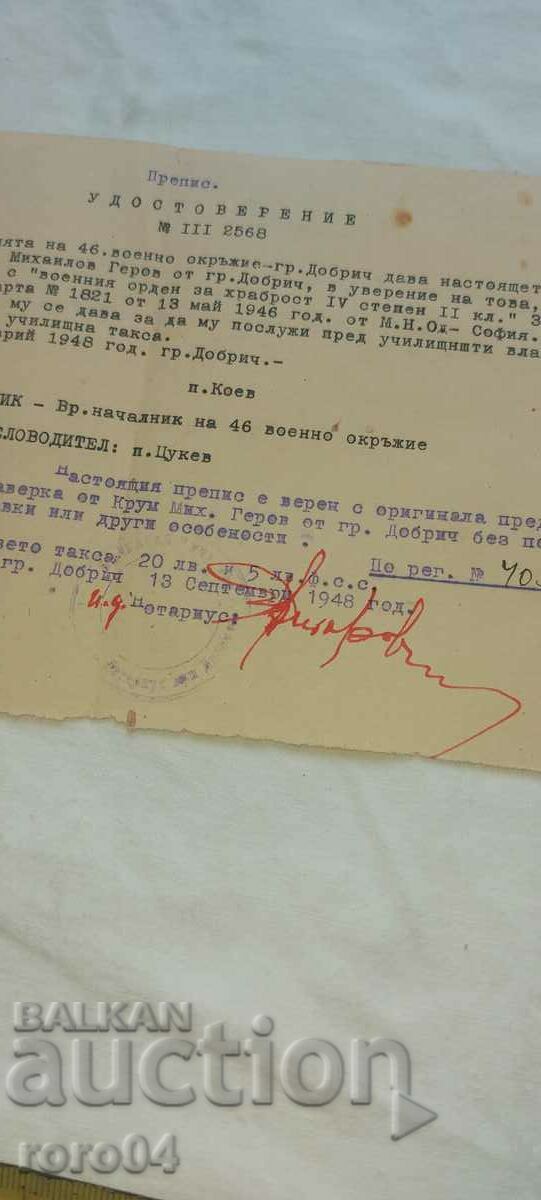 Препис.
УДОСТОВЕРЕНИЕ
№ III 2568
ията на 46.военно окръжие-гр.Добрич дава настоящет
Михаилов Геров от гр.Добрич, в уверение на това,
с "военния орден за храброст IV степен II кл." З
арта № 1821 от 13 май 1946 год. от М.Н.Од- София.
му се дава за да му послужи пред училищншти вла
училищна такса.
арий 1948 год. гр.Добрич.-
п.Коев
ИК - Вр.началник на 46 военно окръжие
СЛОВОДИТЕЛ: п.Цукев
Настоящия препис е верен с оригинала пред
аверка от Крум Мих. Геров от гр. Добрич без по
авки или други особености .
взето такса 20 лв. и 5 лв.ф.с.с. По рег. № 70
гр. Добрич 13 Септември 1948 год.
и.д. Нотариус:
BALKAN
auction
roro04